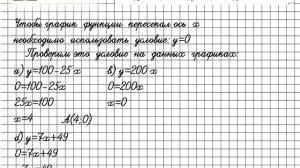 Чтобы график функции пересекал ось x
необходимо использовать условие: y=0
Проверим это условие на данных графиках:
а) y=100-25x в) y=200x
0=100-25x 0=200x
25x=100 x=0
x=4 A(4;0)
б) y=7x+49
0=7x+49